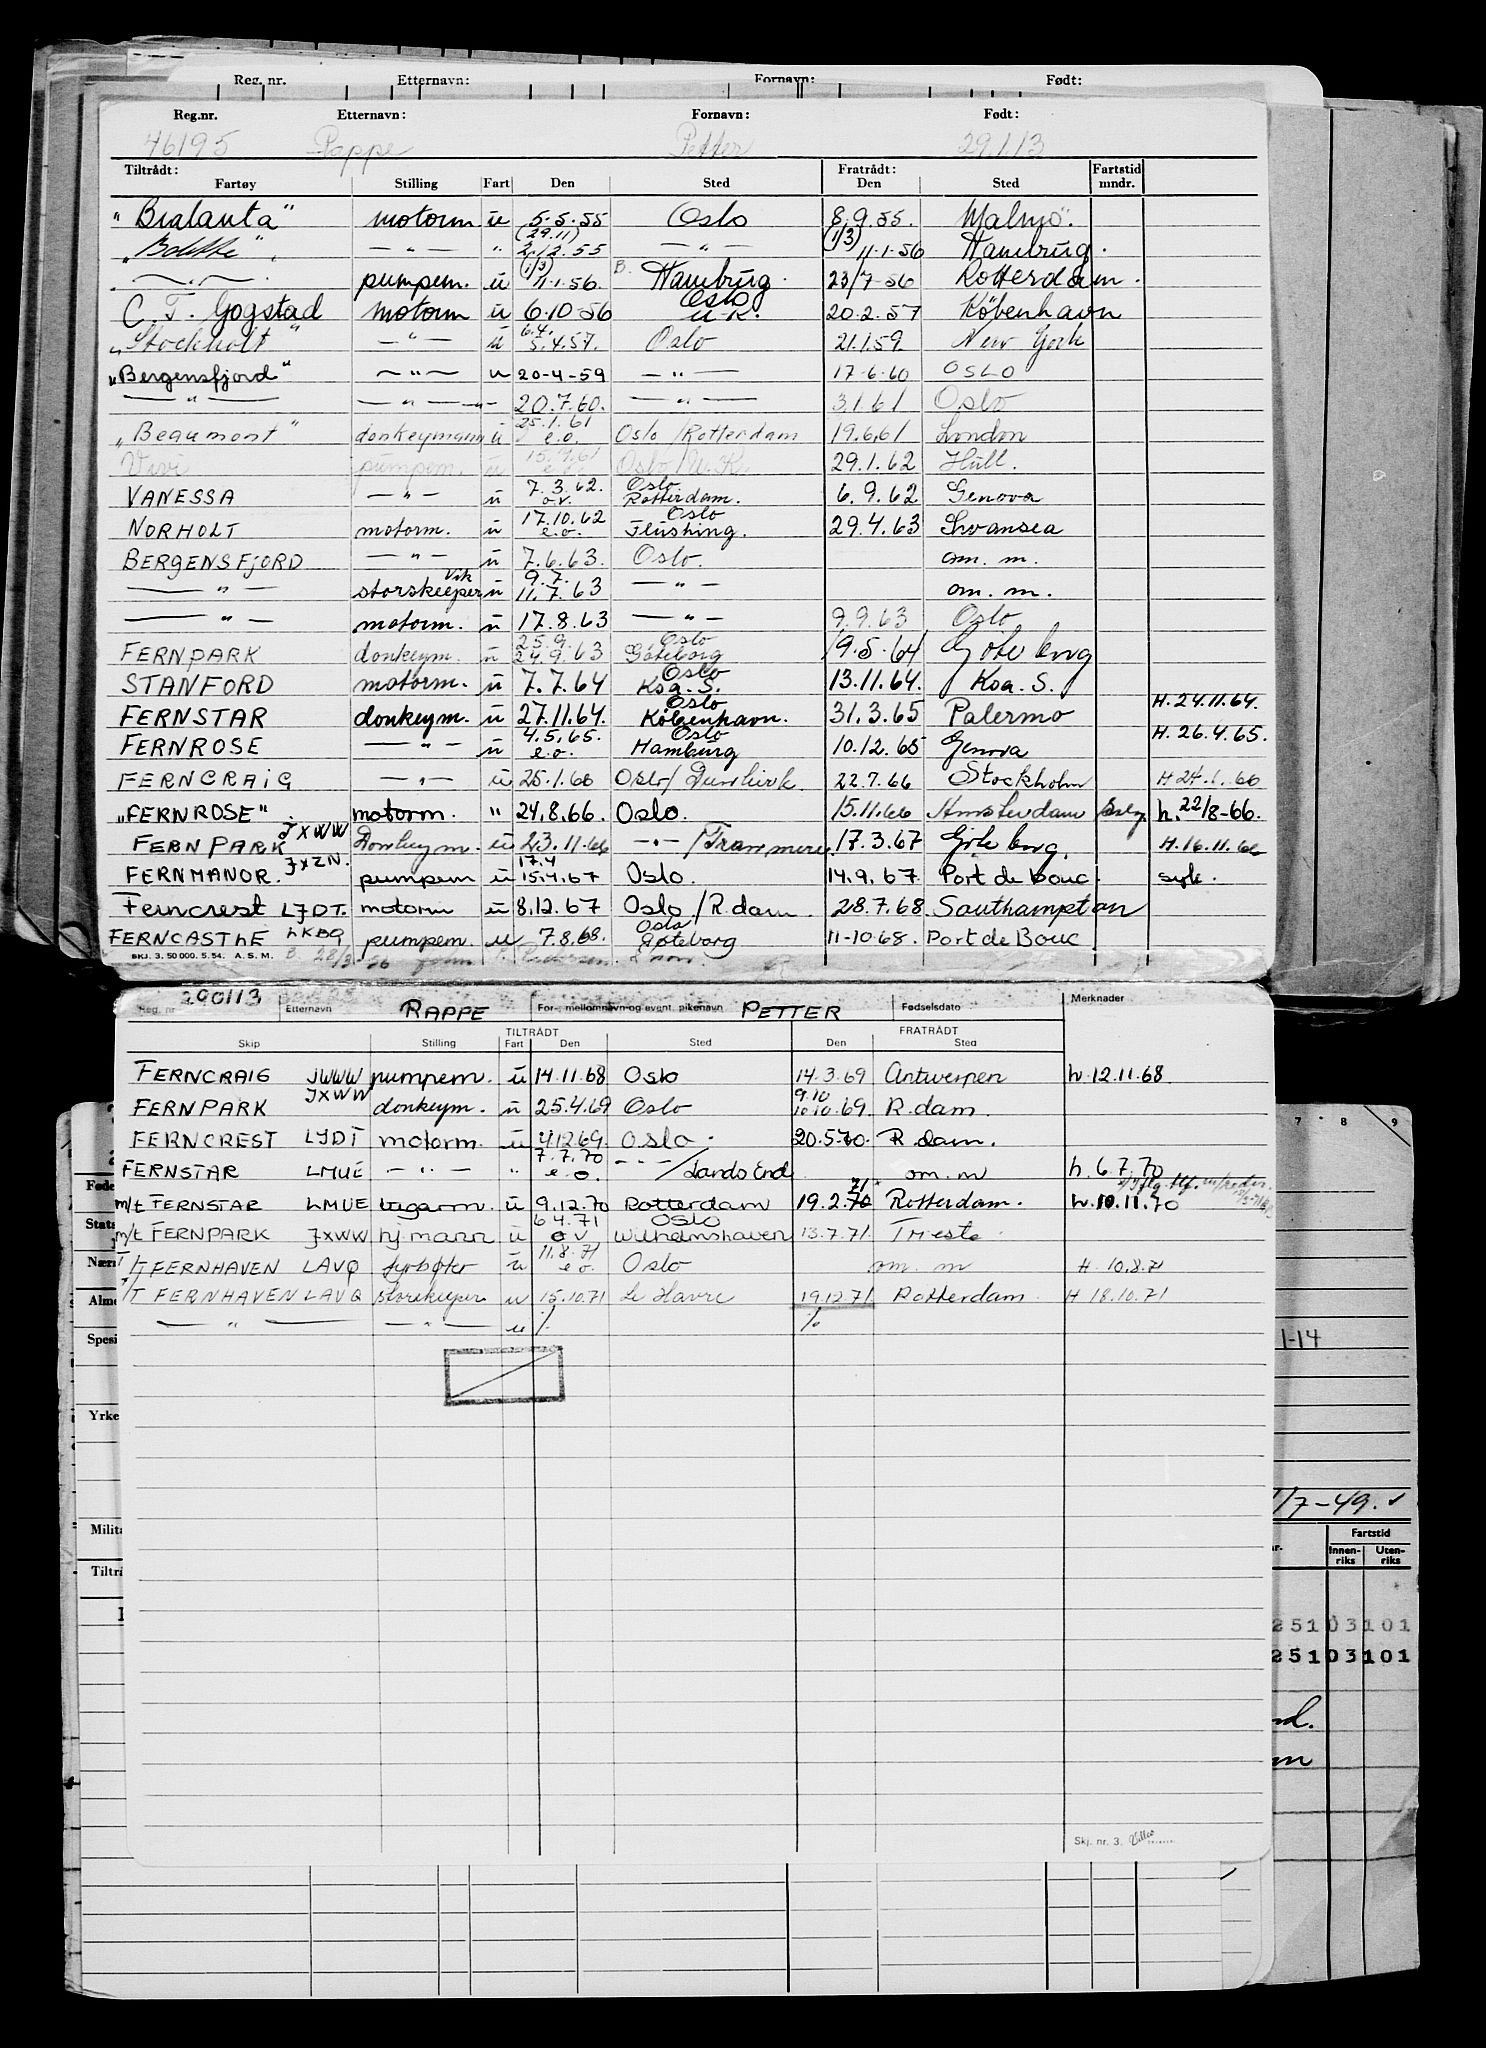 Reg. nr. Etternavn: Fornavn: Født:
Reg.nr. Etternavn: Fornavn: Født:
46195 Rappe Petter 29.1.13
Tiltrådt: Fratrådt: Fartstid
Fartøy Stilling Fart Den Sted Den Sted mndr.
"Bralanta" motorm u 5.5.55 Oslo 8.9.55. Malmø.
(29.11) (1/3)
— " — " 2.12.55 — " — 11.1.56 Hamburg.
(1/3)
— " — pumpem. u 11.1.56. B. Hamburg. 23/7-56 Rotterdam.
Oslo
C. T. Gogstad motorm u 6.10-56 U.K. 20.2.57 København
6.4.
"Stockholt" — " — u 5.4.57. Oslo 21.1.59. New York
"Bergensfjord" — " — u 20-4-59 — " — 17-6-60 OSLO
— " — — " — " — 20.7.60. — " — 3.1.61 Oslo
25.1.61
"Beaumont" donkeymann u e.o. Oslo/Rotterdam 19.6.61 London
15.9.61
Vivi pumpem. u e.o. Oslo/U.K. 29.1.62 Hull.
7.3.62. Oslo
VANESSA — " — u o.v. Rotterdam. 6.9.62 Genova
17.10.62 Oslo
NORHOLT motorm. u e.o. Flushing. 29.4.63 Swansea
BERGENSFJORD — " — u 7.6.63. Oslo. om. m.
Vik 9.7.
— " — storskeeper u 11.7.63 — " — om. m.
— " — motorm. u 17.8.63 — " — 9.9.63 Oslo
25.9. Oslo
FERNPARK donkeym. u 24.9.63 Göteborg 19.5.64 Göteborg
Oslo
STANFORD motorm. u 7.7.64 Koa. S. 13.11.64. Koa. S.
Oslo
FERNSTAR donkeym. u 27.11.64. København. 31.3.65 Palermo H. 24.11.64.
4.5.65. Oslo
FERNROSE — " — u e.o. Hamburg 10.12.65 Genova H. 26.4.65.
FERNCRAIG — " — u 25.1.66 Oslo/Dunkirk 22.7.66 Stockholm H 24.1.66
"FERNROSE". motorm. " 24.8.66. Oslo. 15.11.66 Amsterdam h. 22/8-66.
FERNPARK JXWW Donkeym. u 23.11.66 — " —/Tranmere. 17.3.67 Göteborg. H.16.11.66
17.4
FERNMANOR. JXZN. pumpem u 15.4.67 Oslo. 14.9.67. Port de bouc. syk.
Ferncrest LJDT. motorm u 8.12.67 Oslo/R.dam. 28.7.68 Southampton
Oslo
FERNCASTLE LKBG pumpem. u 7.8.68. Gøteborg 11-10-68. Port de Bouc
SKJ. 3. 50 000. 5.54. A.S.M. B. 28/3 56
290113
Reg. nr Etternavn RAPPE For-, mellomnavn og event. pikenavn PETTER Fødselsdato Merknader
TILTRÅDT FRATRÅDT
Skip Stilling Fart Den Sted Den Sted
FERNCRAIG JWWW pumpem. u 14.11.68 Oslo 14.3.69 Antwerpen h. 12.11.68.
9.10
FERNPARK JXWW donkeym. u 25.4.69 Oslo 10.10.69. R.dam.
FERNCREST LJDT motorm. u 4.12.69. Oslo. 20.5.70. R.dam.
7.7.70
FERNSTAR LMUE — " — " e.o. — " —/Lands End om. m h. 6.7.70
71
m/t FERNSTAR LMUE u 9.12.70 Rotterdam 19.2.70 Rotterdam. h. 10.11.70
6.4.71 OSLO
m/t FERNPARK JXWW hj.mann u o v Wilhelmshaven 13.7.71. Trieste.
11.8.71
T/T FERNHAVEN LAVQ fyrbøter u e o. Oslo om. m H. 10.8.71
T/T FERNHAVEN LAVQ storekeeper u 15.10.71 Le Havre 19.12.71. Rotterdam. H 18.10.71
— " — — " — u % %
Skj. nr. 3.
7 8 9
Føde
Stats
Nær
Alme
Spesi
1-14
Yrke
/7-49. ✓
Milita
Fartstid
Innen-riks Uten-riks
Tiltrå
25103101
25103101